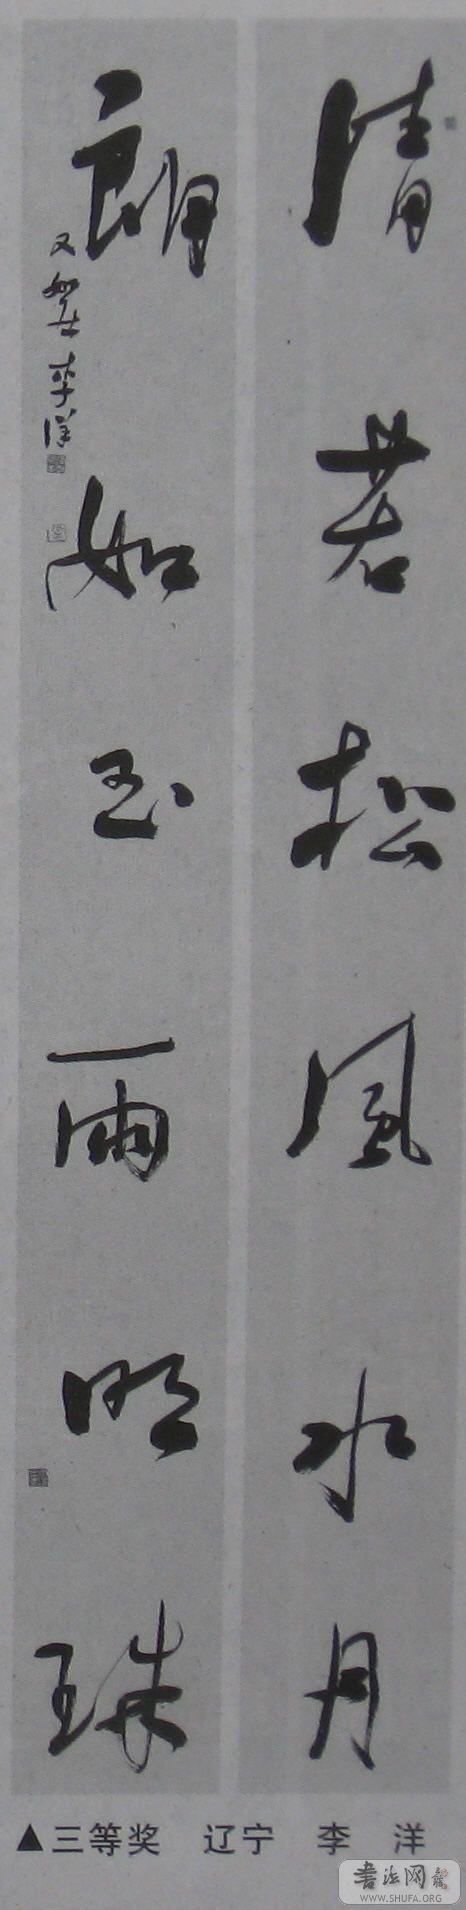 清若松風水月
朗如玉雨明珠
李洋
▲三等奖 辽宁 李 洋
书法网
WWW.SHUFA.ORG